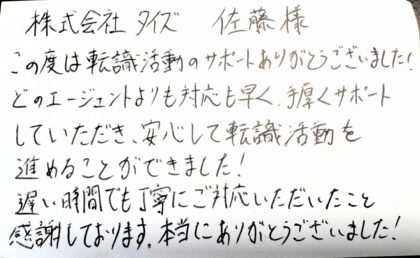 株式会社 タイズ 佐藤様
この度は転識活動のサポートありがとうございました!
どのエージェントよりも対応も早く、手厚くサポート
していただき、安心して転識活動を
進めることができました!
遅い時間でも丁寧にご対応いただいたこと
感謝しております。本当にありがとうございました!